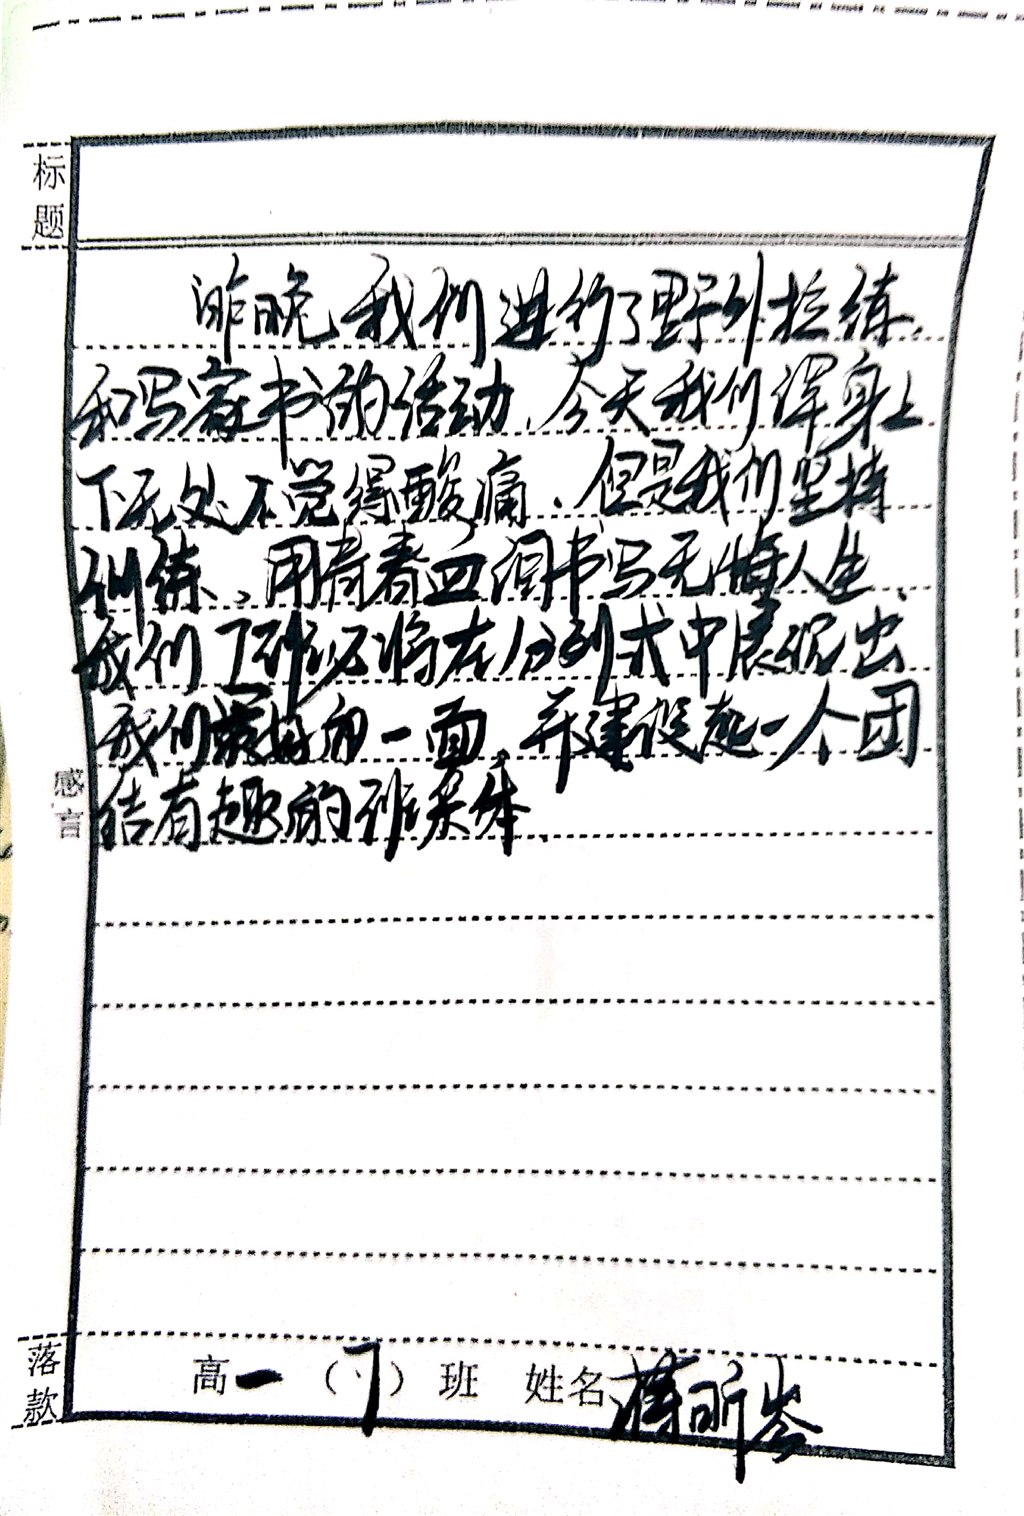 标题
昨晚我们进行了野外拉练,
和写家书的活动,今天我们浑身上
下无处不觉得酸痛.但是我们坚持
训练,用青春血泪书写无悔人生.
我们7班必将在分列式中展现出
我们最好的一面,并建设起一个团
感言
结有趣的班集体.
落款
高一(7)班 姓名 蒋昕岑